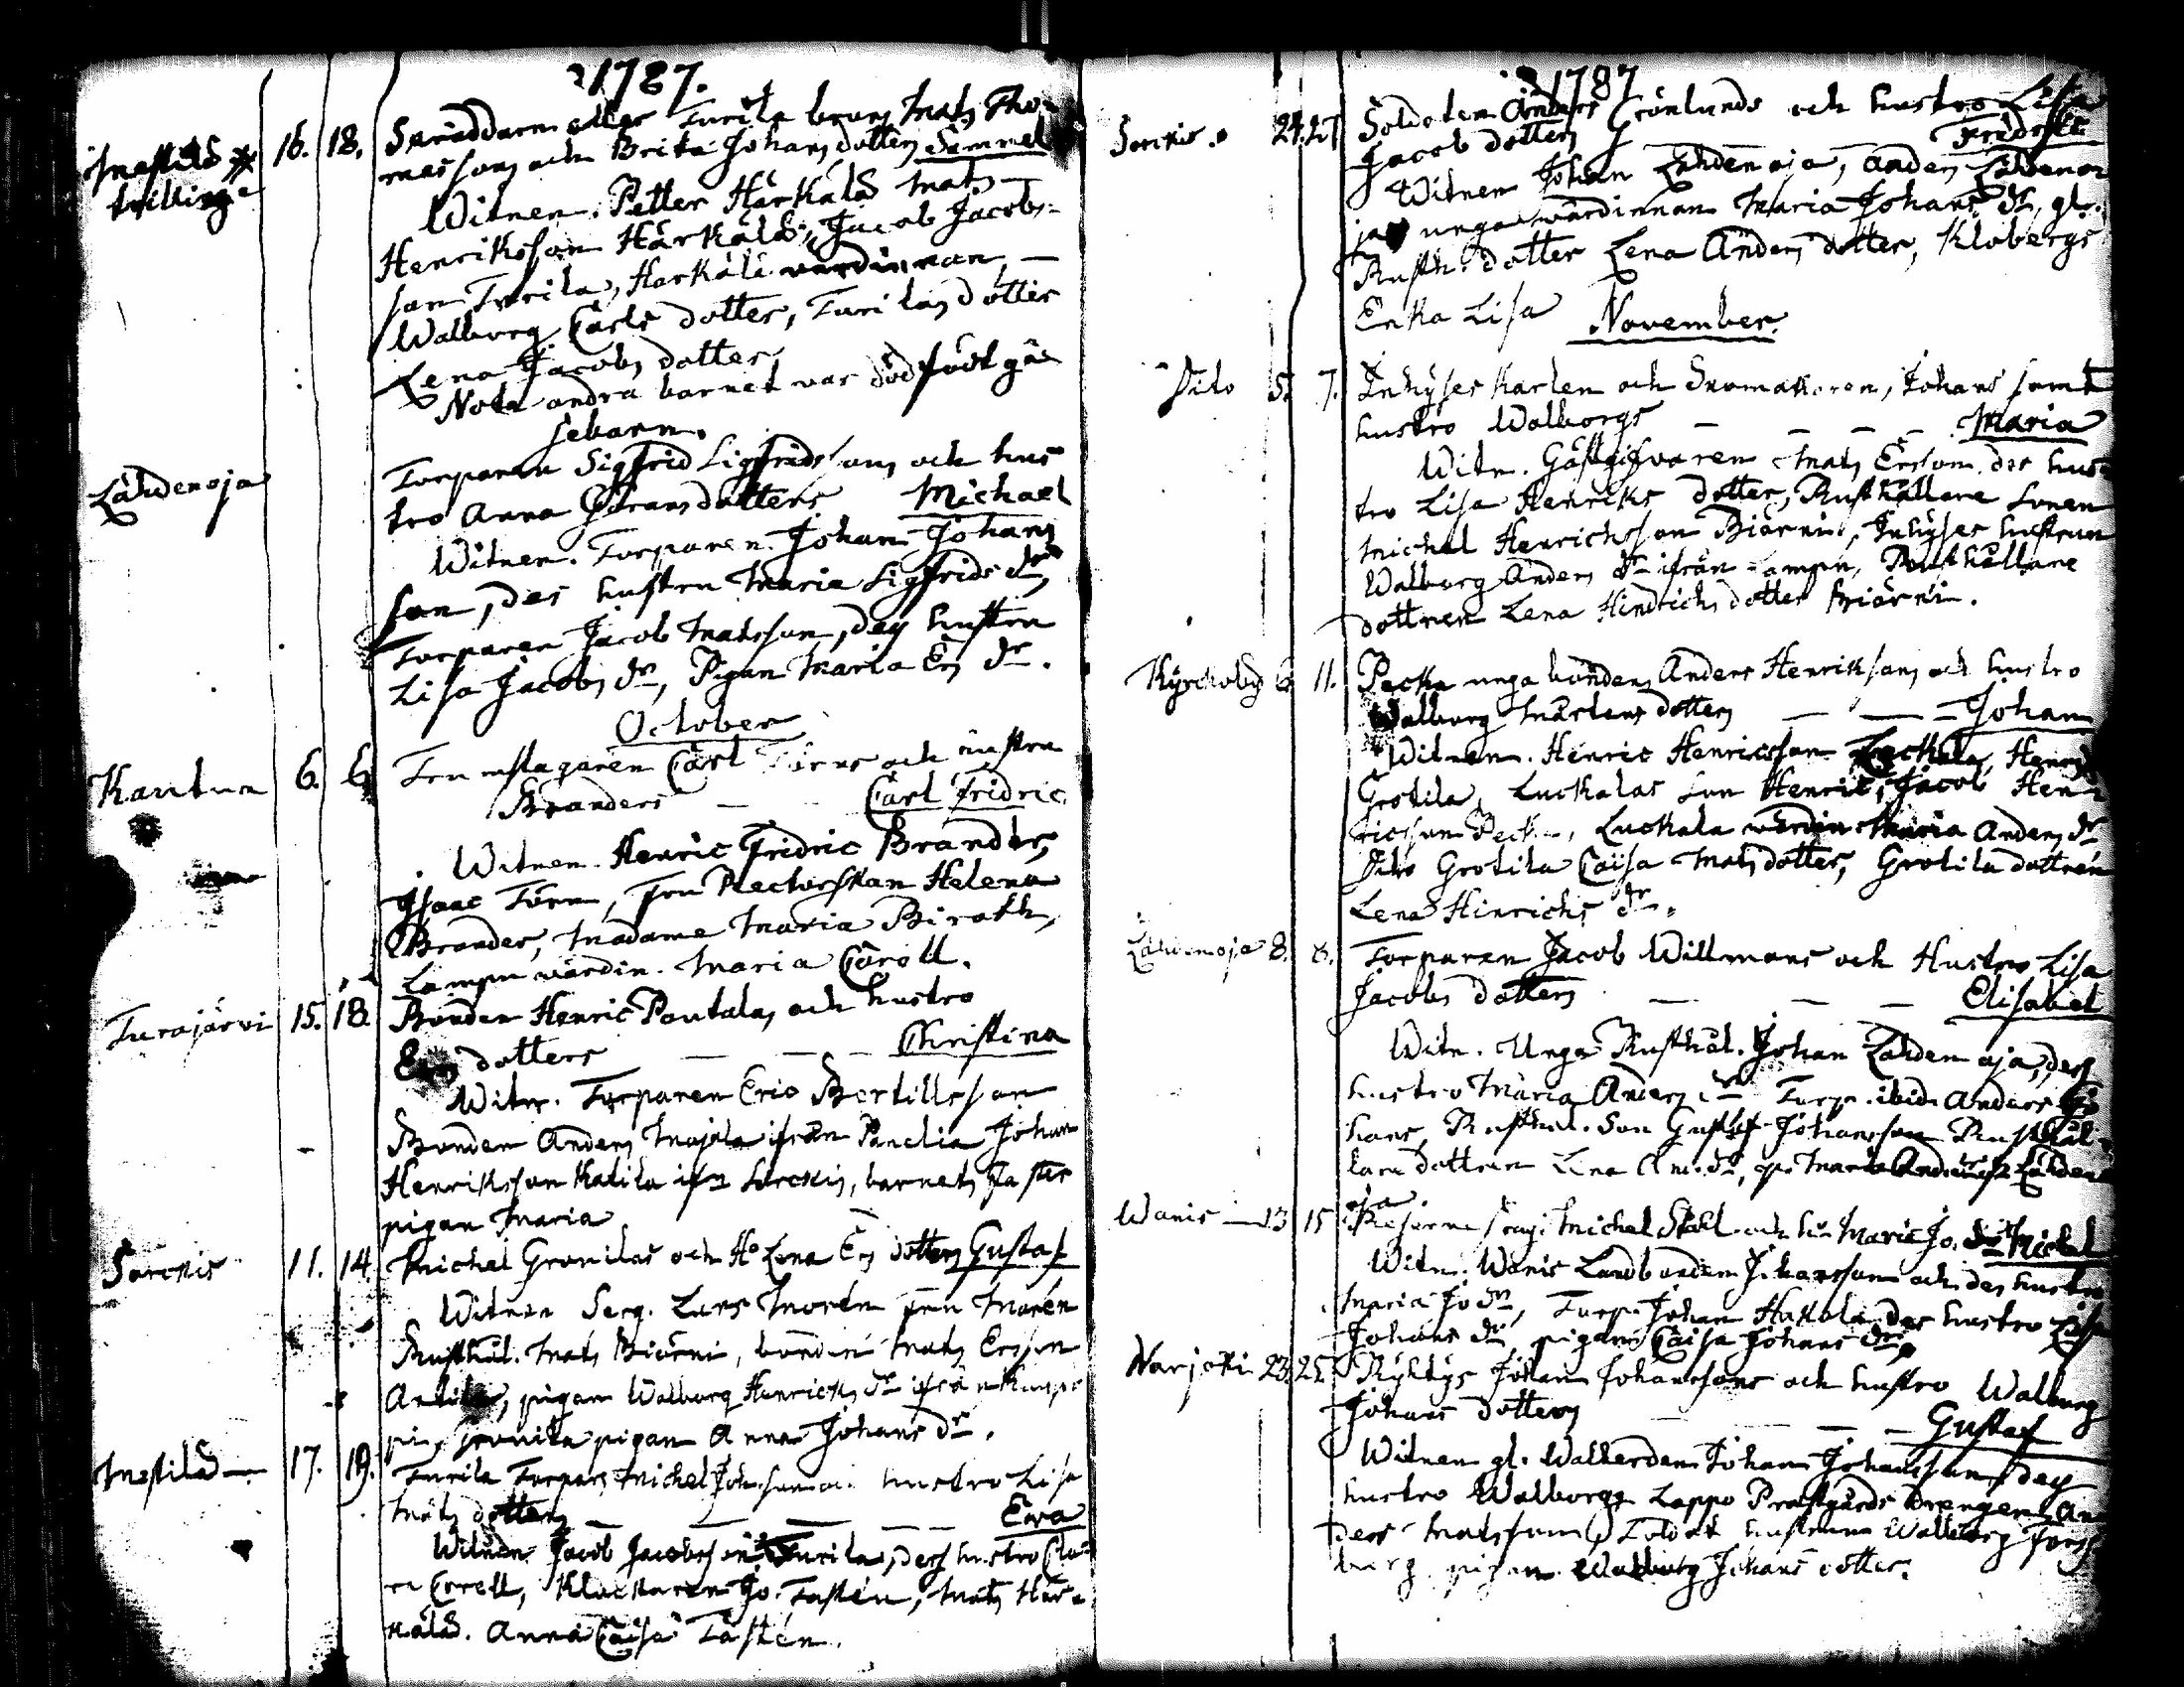 1787.
Mastild
trillinge
16. 18. Skräddaren eller Turila bruns Mats Tho-
massons och Brita Johansdotters Sammel
Witnen. Petter Härkälä Mats
Henriksson Härkälä, Jacob Jacobs-
son Turila, Härkälä wärdinnan
Walborg Carls dotter, Turilas dotter
Lena Jacobs dotter,
Nota andra barnet war dödfödt gås
sebarn.
Lähdenoja
Torparen Sigfrid Sigfridssons och hus
tro Anna Göransdotters Michael
Witnen. Torparen Johan Johans
son, des hustru Maria Sigfrids dr
Torparen Jacob Matsson, des hustru
Lisa Jacobs dr, Pigan Maria Ers dr.
October
Kantun 6. 6.
Carl och hustru
Branders — Carl Fridric
Witnen. Henric Fridric Brander,
Isaac Törn, fru Rectorskan Helena
Brander, Madame Maria Birath,
Lampu wärdin. Maria Caroll.
Turajärvi 15. 18. Bonden Henric Pautalas och hustro
Ers dotters — — Christina
Witn. Torparen Eric Bertillsson
Bonden Anders Majala ifrån Panelia Johan
Henriksson Katila ifr. Sorckis, barnets faster
pigan Maria
Sorckis 11. 14. Michel Gronilas och Ho Lena Ers dotters Gustaf
Witnen Serg. Lars Morén fru Morén
Rusthål. Mats Biörni, bonden Mats Ersson
Antila, pigan Walborg Henricks dr ifrån
pigan Anna Johans dr.
Mestilä — 17. 19. Turila Torpare Michel hustro Lisa
Mats dotters — — — Eva
Witnen Jacob Jacobsson Turila, des hustro Cla-
ra Correll, Klockaren Jo. Tastén, Mats Här-
kälä. Anna Caisa Tastén.
1787
Sorckis. 24. 27 Soldaten Anders Grönlunds och hustro Lisa
Jacob dotters Fridric
Witnen Johan Lähdenoja, Anders Lähdeno-
ja unga wärdinnan Maria Johans dr, gl.
Rusth. dotter Lena Anders dotter, Klobergs
Enka Lisa
November.
Dito 5. 7. Inhyses Karlen och Skomakaren, Johans samt
hustro Walborgs — — — Maria
Witn. Gästgifvaren Mats Ersson, des hus-
tro Lisa Henriks dotter, Rusthållare sonen
Michel Henrichsson Biörni, Inhyses hustrun
Walborg Anders dr ifrån Lampu, Rusthållare
dottren Lena Hindrichs dotter Biörni.
Kyrckoby 6 11. Pecka unga bondens Anders Henrikssons och hustro
Walborg Mårtens dotters — — Johan
Witnen. Henric Henricsson Luckala, Henric
Grotila, Luckalas son Henric, Jacob Hen-
ricsson Pecka, Luckala wärdin Maria Anders dr
Dito Grotila Caisa Mats dotter, Grotila dottren
Lena Hinrichs dr.
Lähdenoja 8. 8. Torparen Jacob Willmans och Hustro Lisa
Jacobs dotters — — — Elisabet
Witn. Unga Rusthål. Johan Lähdenoja, des
hustro Maria Anders dr Torp. ibid. Anders Jo
hans, Rusthål. Son Gustaf Johansson Rusthål-
lare dottren Lena dr, Maria Lähden
oja.
Wanis — 13 15 Michel Ståhl och hu Maria Jo. dr Michel
Witn. Wanis Landbonden Johansson och des hustro
Maria Jo dr, Torp. Johan Hakala des hustro Lisa
Johans dr pigan Caisa Johans dr.
Warjoki 23. 25. Johan Johanssons och hustro Walborg
Johans dotters — — — Gustaf
Witnen gl. Johan Johansson, des
hustro Walborg Lappo Prästgårds Drengen An
ders Matsson, Soldat hustrun Walborg Fors
berg pigan Walborg Johans dotter.